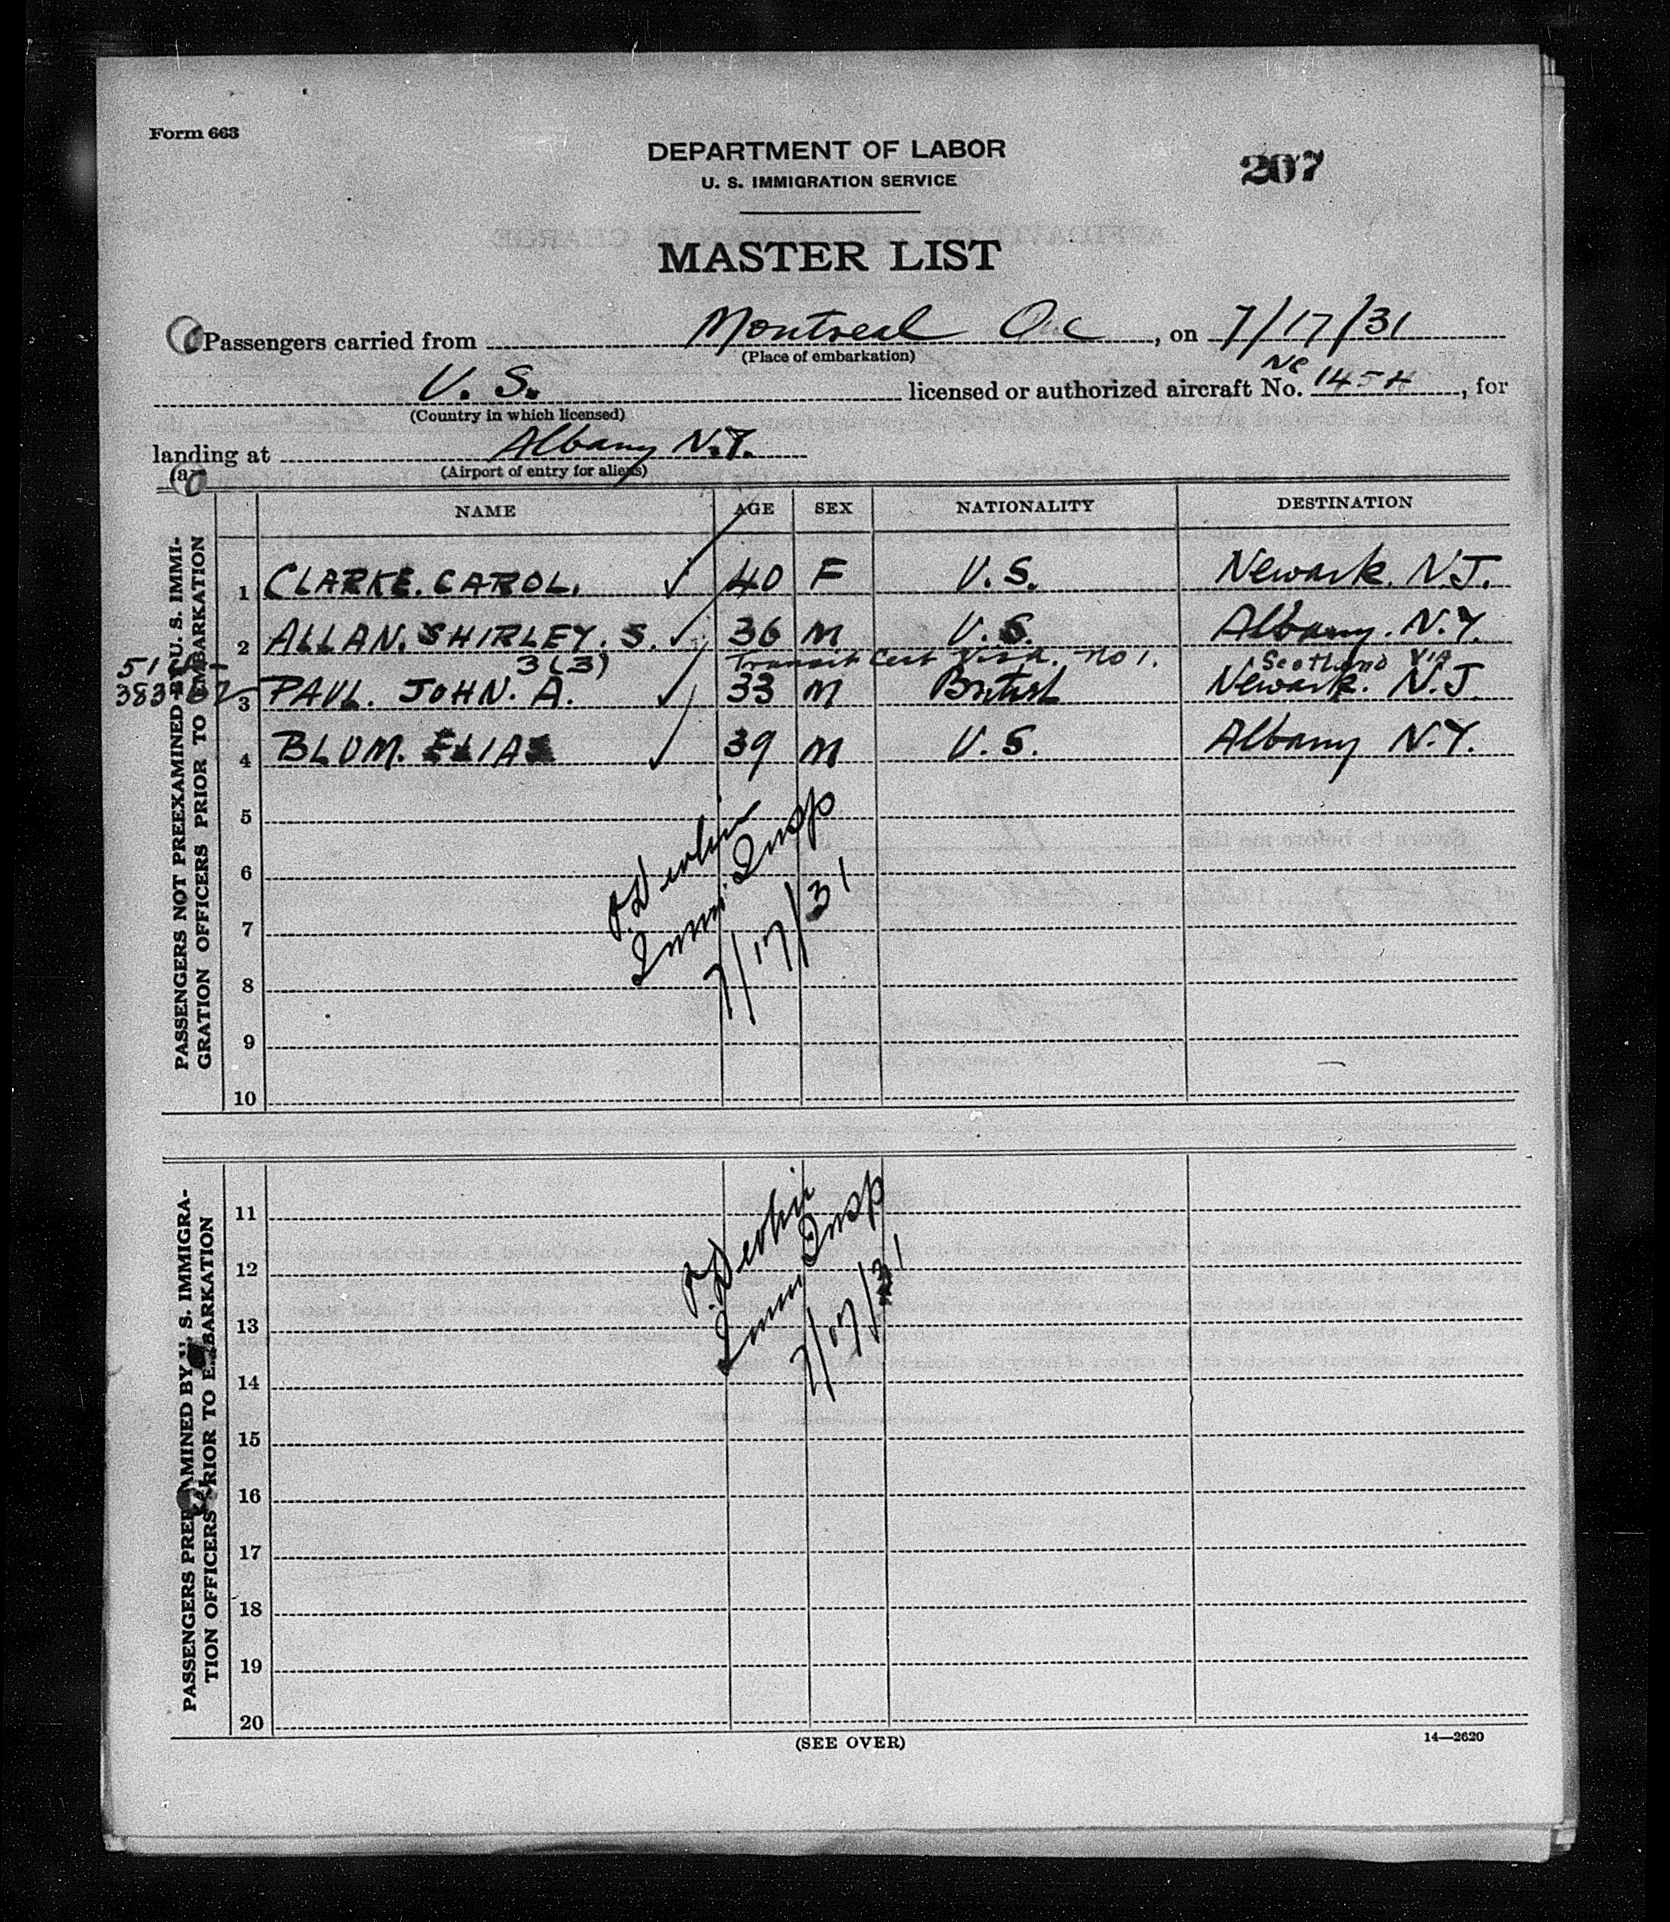 Form 663
DEPARTMENT OF LABOR
U. S. IMMIGRATION SERVICE
207
MASTER LIST
Passengers carried from Montreal Quc, on 7/17/31
(Place of embarkation)
U. S. licensed or authorized aircraft No. NC 145H, for
(Country in which licensed)
landing at Albany N.Y.
(Airport of entry for aliens)
NAME AGE SEX NATIONALITY DESTINATION
PASSENGERS NOT PREEXAMINED BY U. S. IMMI-
GRATION OFFICERS PRIOR TO EMBARKATION
1 CLARKE. CAROL. 40 F U. S. Newark. N.J.
2 ALLAN. SHIRLEY. S. 36 M U. S. Albany. N.Y.
3(3) Transit Cert Visa. no 1. Scotland VIA
3 PAUL. JOHN. A. 33 M British Newark. N.J.
4 BLUM. ELIAS 39 M U. S. Albany N.Y.
5
6
7
8
9
10
Immi. Insp
7/17/31
PASSENGERS PREEXAMINED BY U. S. IMMIGRA-
TION OFFICERS PRIOR TO EMBARKATION
11
12
13
14
15
16
17
18
19
20
Immi Insp
7/17/31
(SEE OVER)
14—2620